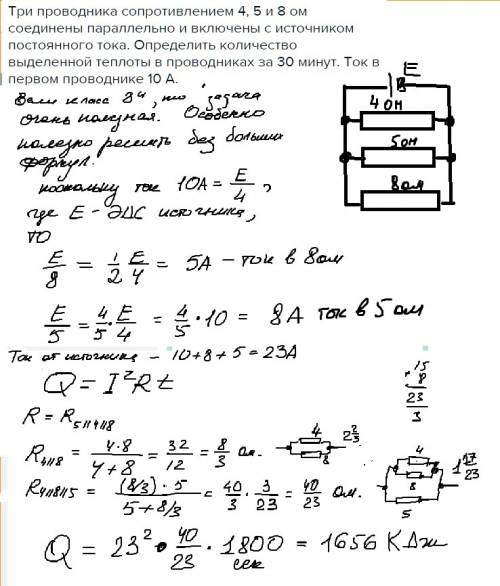 Три проводника сопротивлением 4, 5 и 8 ом
соединены параллельно и включены с источником
постоянного тока. Определить количество
выделенной теплоты в проводниках за 30 минут. Ток в
первом проводнике 10 А.
E
4 ом
5 ом
8 ом
класс 8й, то задача
очень полезная. Особенно
полезно решить без больших
формул.
поскольку ток 10А = E/4,
где E - ЭДС источника,
то
E/8 = 1/2 E/4 = 5А - ток в 8 ом
E/5 = 4/5 · E/4 = 4/5 · 10 = 8 А ток в 5 ом
Ток от источника - 10+8+5 = 23А
Q = I²Rt
R = R5//4//8
R4//8 = 4·8/4+8 = 32/12 = 8/3 ом.
4
8
2 2/3
R4//8//5 = (8/3)·5/5+8/3 = 40/3 · 3/23 = 40/23 ом.
15
8
23
3
4
8
5
1 17/23
Q = 23² · 40/23 · 1800 = 1656 КДж
сек